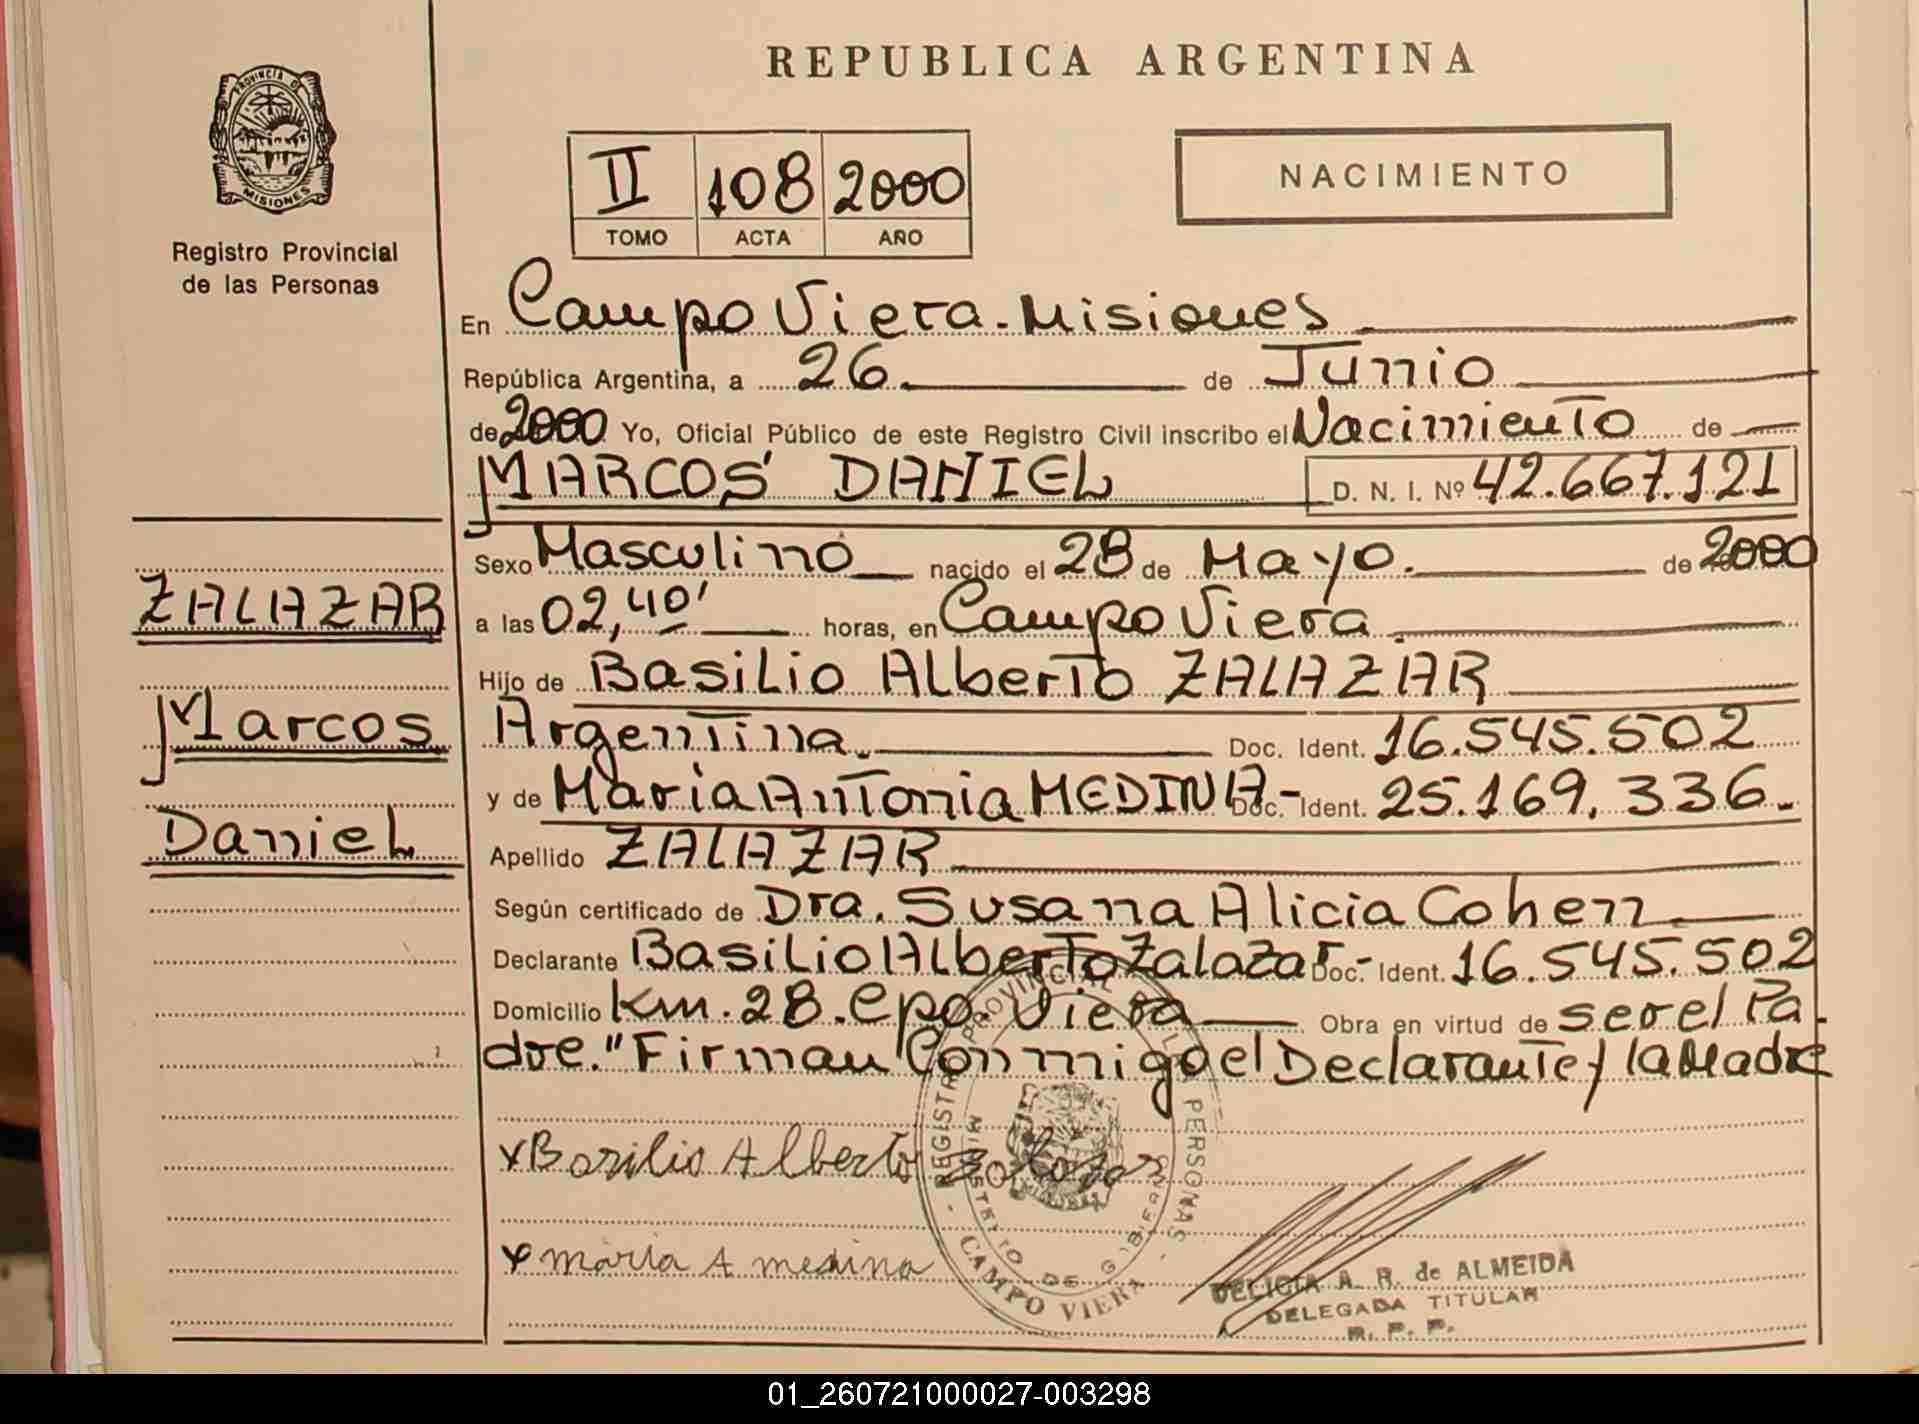 REPUBLICA ARGENTINA
PROVINCIA DE MISIONES
Registro Provincial
de las Personas
II 108 2000
TOMO ACTA AÑO
NACIMIENTO
En Campo Viera - Misiones
República Argentina, a 26 de Junio
de 2000 Yo, Oficial Público de este Registro Civil inscribo el Nacimiento de
MARCOS DANIEL D. N. I. Nº 42.667.121
Sexo Masculino nacido el 28 de Mayo. de 2000
a las 02,40' horas, en Campo Viera.
Hijo de Basilio Alberto ZALAZAR
Argentina. Doc. Ident. 16.545.502
y de Maria Antonia MEDINA - Doc. Ident. 25.169.336.
Apellido ZALAZAR
Según certificado de Dra. Susana Alicia Cohen
Declarante Basilio Alberto Zalazar - Doc. Ident. 16.545.502
Domicilio Km. 28. Cpo. Viera Obra en virtud de ser el Pa-
dre." Firman Conmigo el Declarante y la Madre
ZALAZAR
Marcos
Daniel
x Basilio Alberto Zalazar
x maria A medina
REGISTRO PROVINCIAL DE LAS PERSONAS
MINISTERIO DE GOBIERNO
- CAMPO VIERA -
DELICIA A. R. de ALMEIDA
DELEGADA TITULAR
R. P. P.
01_260721000027-003298